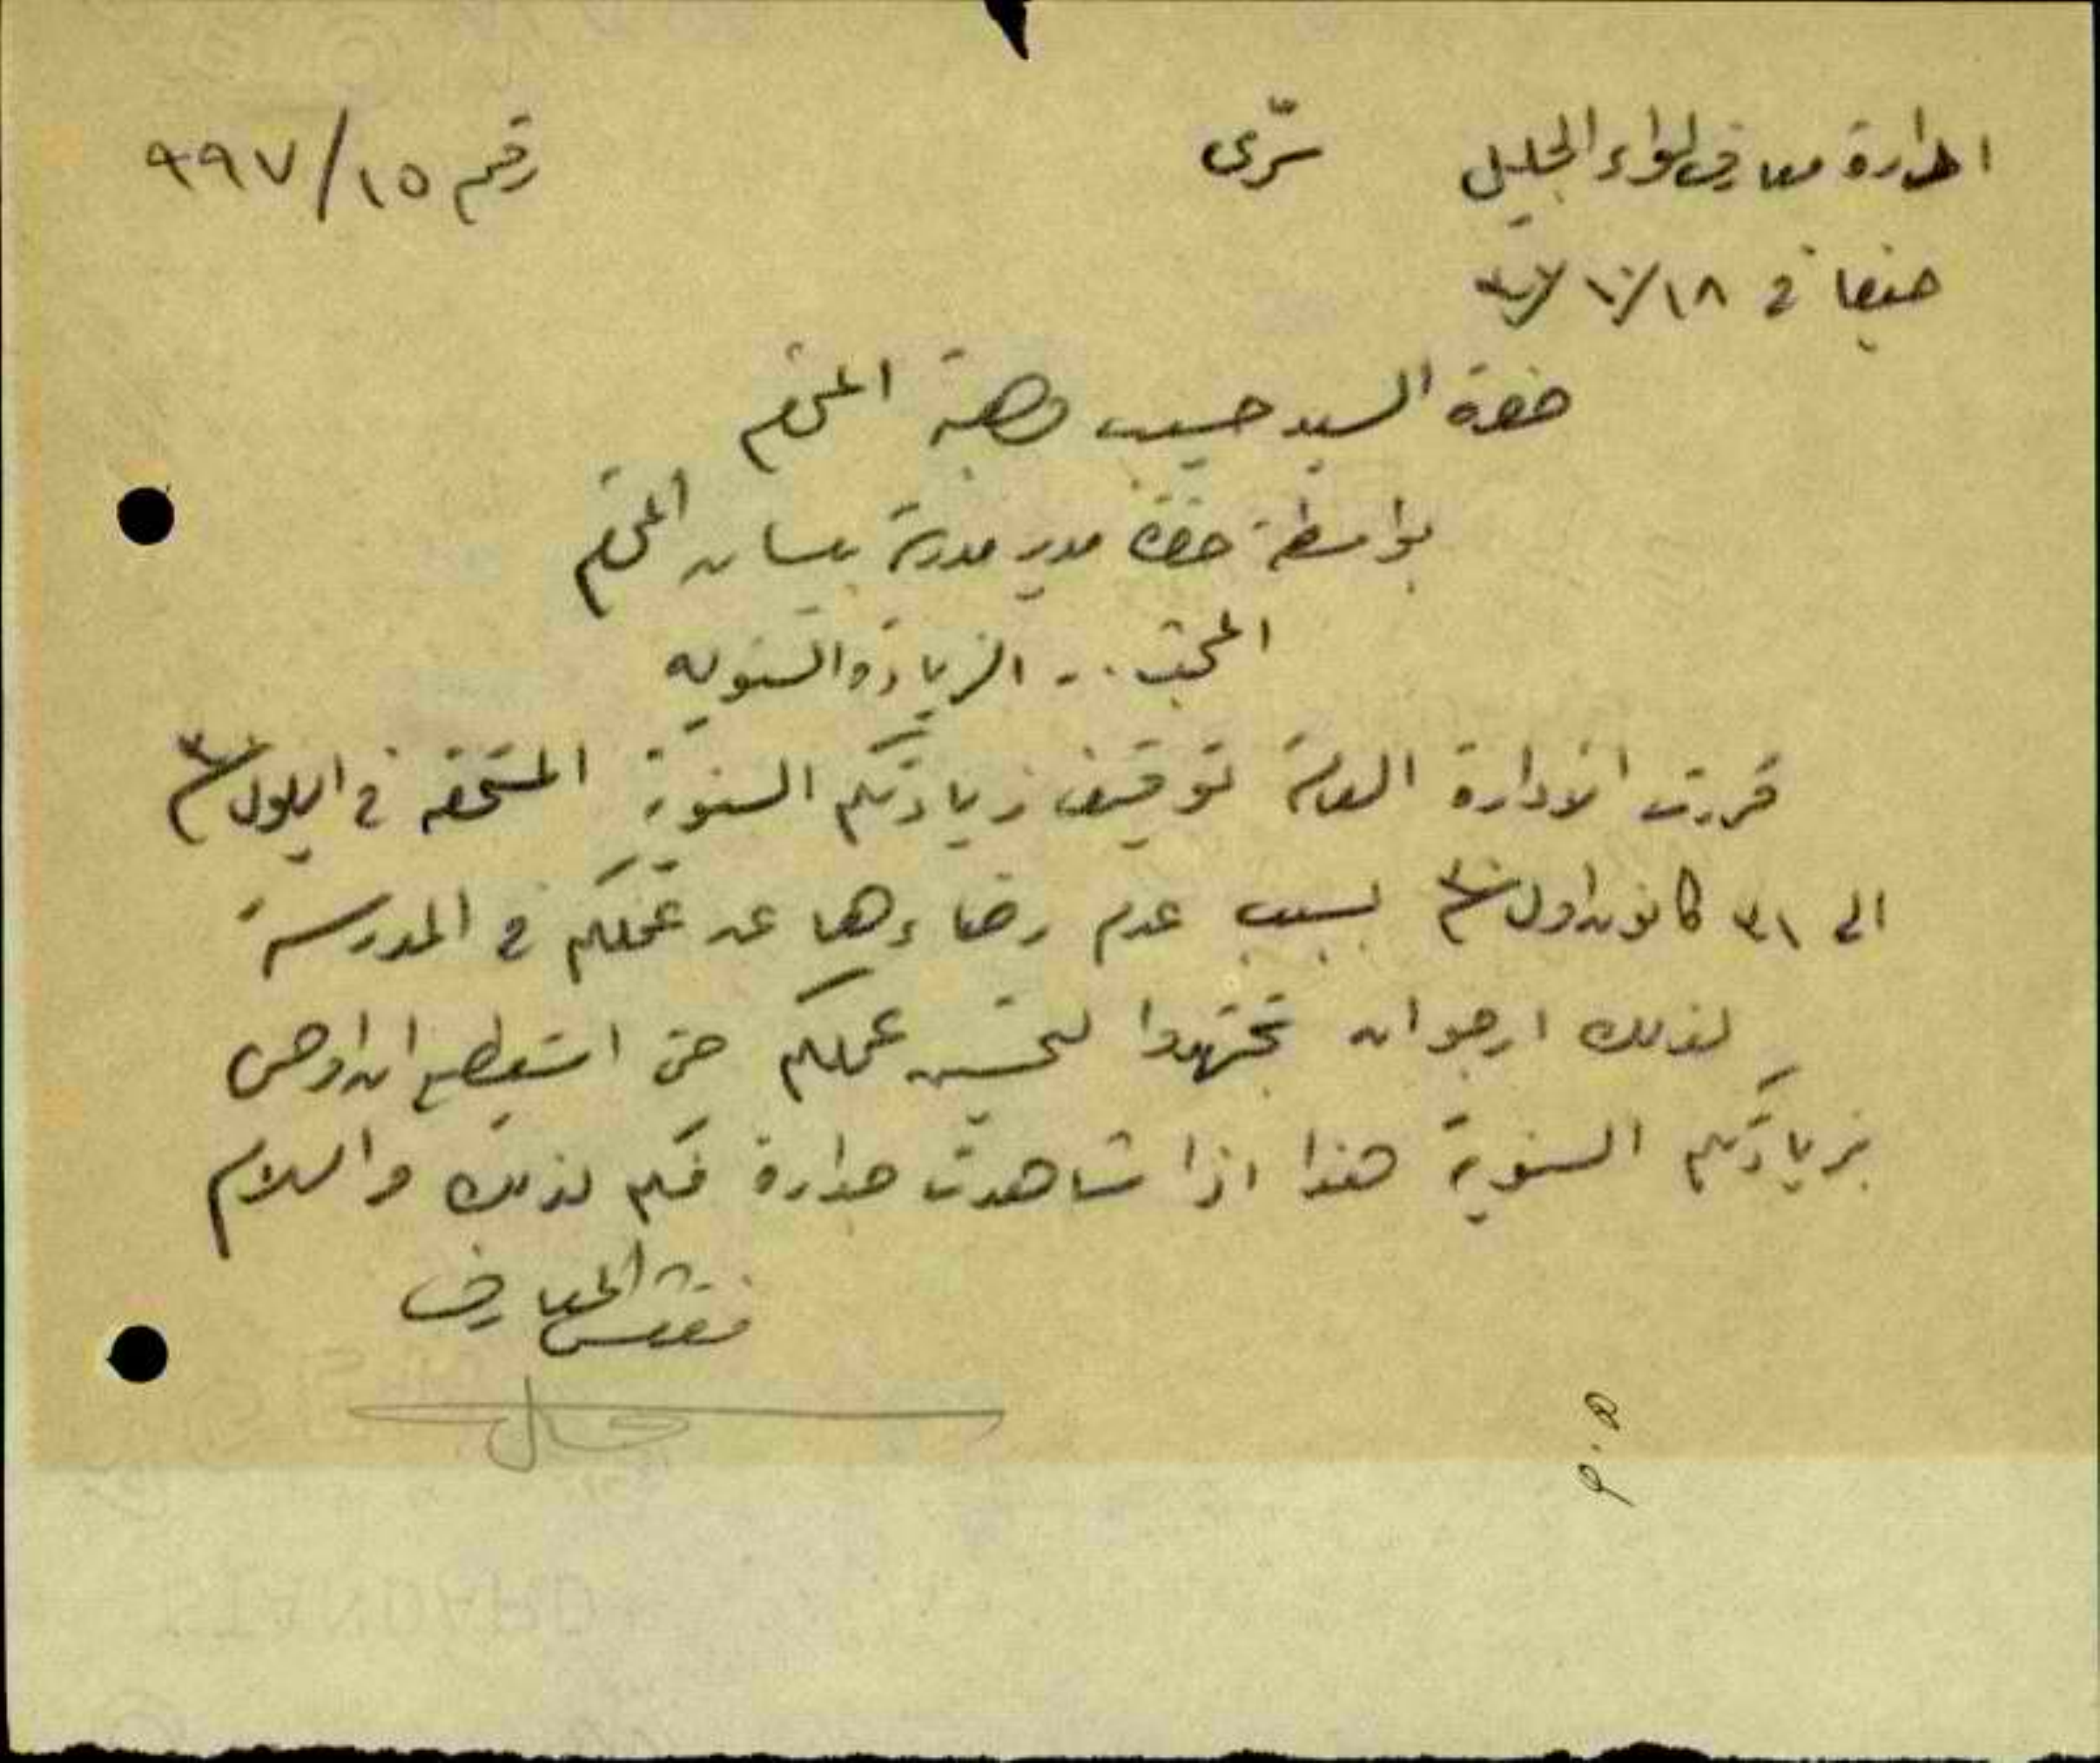 ادارة معارف لواء الجليل سرّي رقم ١٥/٩٩٧
حيفا في ١٨/١٠/
حضرة السيد حسيب وهبة المحترم
بواسطة حضرة مدير مدرسة بيسان المحترم
المبحث .. الزيادة السنويه
قررت الادارة العامة توقيف زيادتكم السنوية المستحقه في ايلول سنة ٣٠
الى ٣١ كانون اول سنة ٣٠ بسبب عدم رضاءها عن عملكم في المدرسة
لذلك ارجو ان تجتهدوا لتحسين عملكم حتى استطيع ان اوصي
بزيادتكم السنوية هذا اذا شاهدت جدارة فيكم لذلك والسلام
مفتش المعارف